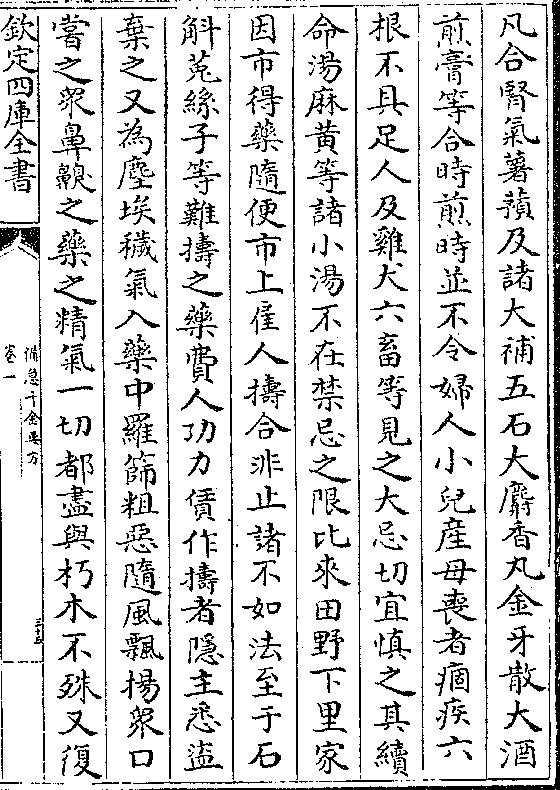 凡合腎氣薯蕷及諸大補五石大麝香丸金牙散大酒
煎膏等合時煎時並不令婦人小兒産母喪者痼疾六
根不具足人及雞犬六畜等見之大忌切宜慎之其續
命湯麻黄等諸小湯不在禁忌之限比來田野下里家
因市得藥隨便市上雇人擣合非止諸不如法至于石
斛菟絲子等難擣之藥費人功力賃作擣者隱主悉盜
棄之又為塵埃穢氣入藥中羅篩粗惡隨風飄揚衆口
嘗之衆鼻齅之藥之精氣一切都盡與朽木不殊又復
欽定四庫全書
備急千金要方
卷一